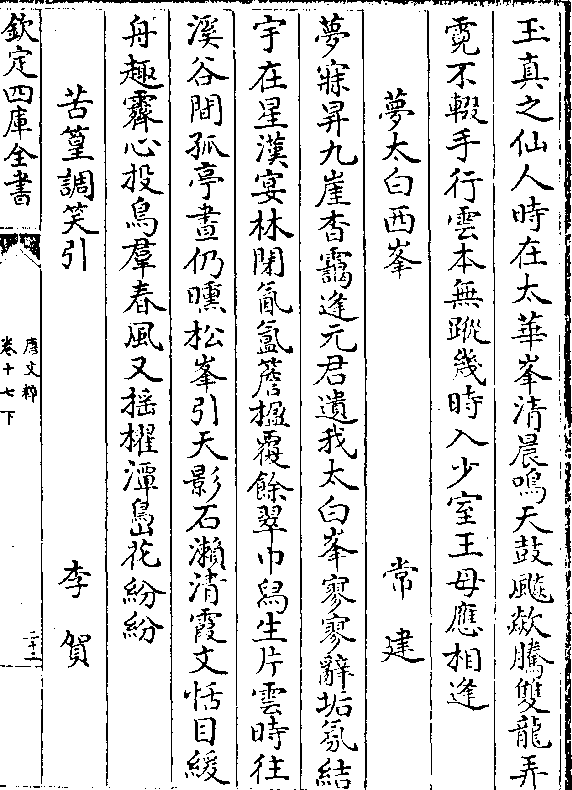 玉真之仙人時在太華峯清晨鳴天鼓飈歘騰雙龍弄
霓不輟手行雲本無蹤幾時入少室王母應相逢
夢太白西峯　常建
夢寐昇九崖杳靄逢元君遺我太白峯寥寥辭垢氛結
宇在星漢宴林閉氤氲簷楹覆餘翠巾舄生片雲時往
溪谷間孤亭晝仍曛松峯引天影石瀨清霞文恬目緩
舟趣霽心投鳥羣春風又揺櫂潭島花紛紛
苦篁調笑引　李賀
欽定四庫全書
唐文粹
卷十七下